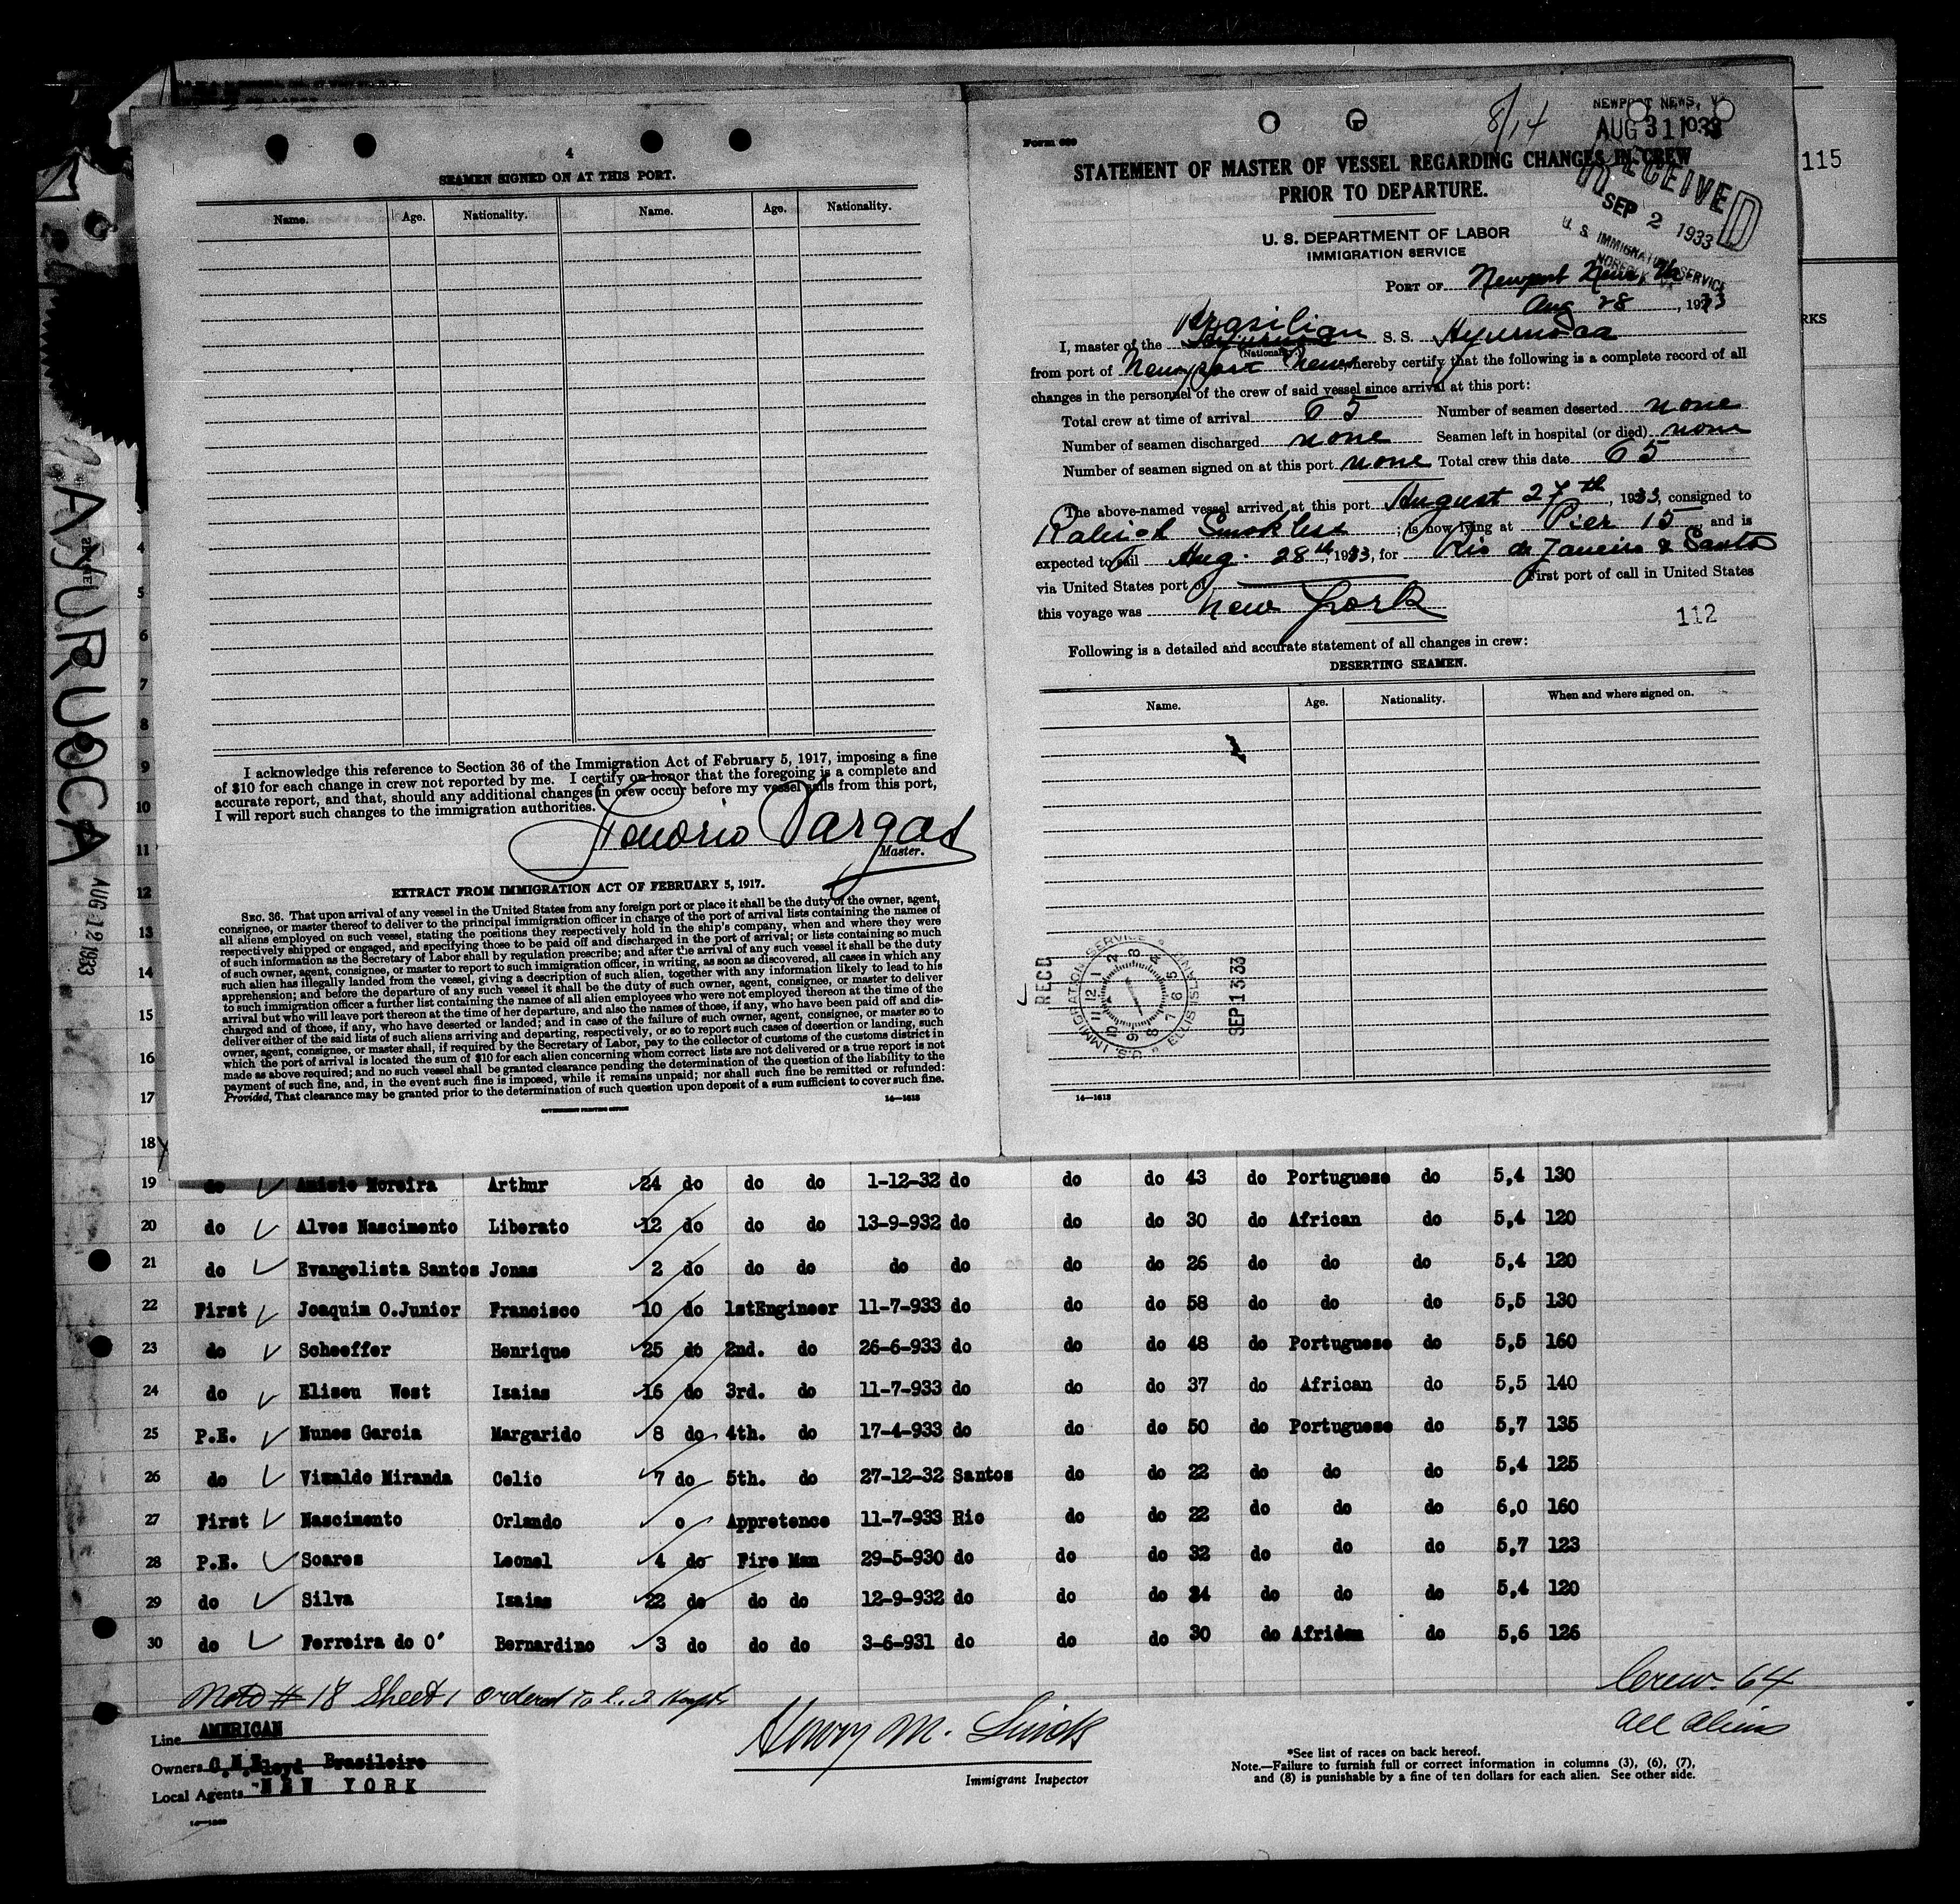 4
SEAMEN SIGNED ON AT THIS PORT.
Name. Age. Nationality. Name. Age. Nationality.
I acknowledge this reference to Section 36 of the Immigration Act of February 5, 1917, imposing a fine
of $10 for each change in crew not reported by me. I certify on honor that the foregoing is a complete and
accurate report, and that, should any additional changes in crew occur before my vessel sails from this port,
I will report such changes to the immigration authorities.
Vargas
Master.
EXTRACT FROM IMMIGRATION ACT OF FEBRUARY 5, 1917.
SEC. 36. That upon arrival of any vessel in the United States from any foreign port or place it shall be the duty of the owner, agent,
consignee, or master thereof to deliver to the principal immigration officer in charge of the port of arrival lists containing the names of
all aliens employed on such vessel, stating the positions they respectively hold in the ship's company, when and where they were
respectively shipped or engaged, and specifying those to be paid off and discharged in the port of arrival; or lists containing so much
of such information as the Secretary of Labor shall by regulation prescribe; and after the arrival of any such vessel it shall be the duty
of such owner, agent, consignee, or master to report to such immigration officer, in writing, as soon as discovered, all cases in which any
such alien has illegally landed from the vessel, giving a description of such alien, together with any information likely to lead to his
apprehension; and before the departure of any such vessel it shall be the duty of such owner, agent, consignee, or master to deliver
to such immigration officer a further list containing the names of all alien employees who were not employed thereon at the time of the
arrival but who will leave port thereon at the time of her departure, and also the names of those, if any, who have been paid off and dis-
charged and of those, if any, who have deserted or landed; and in case of the failure of such owner, agent, consignee, or master so to
deliver either of the said lists of such aliens arriving and departing, respectively, or so to report such cases of desertion or landing, such
owner, agent, consignee, or master shall, if required by the Secretary of Labor, pay to the collector of customs of the customs district in
which the port of arrival is located the sum of $10 for each alien concerning whom correct lists are not delivered or a true report is not
made as above required; and no such vessel shall be granted clearance pending the determination of the question of the liability to the
payment of such fine, and, in the event such fine is imposed, while it remains unpaid; nor shall such fine be remitted or refunded:
Provided, That clearance may be granted prior to the determination of such question upon deposit of a sum sufficient to cover such fine.
GOVERNMENT PRINTING OFFICE 14—1613
8/14
NEWPORT NEWS, VA
AUG 31 1933
STATEMENT OF MASTER OF VESSEL REGARDING CHANGES IN CREW
PRIOR TO DEPARTURE.
RECEIVED
SEP 2 1933
U. S. IMMIGRATION SERVICE
U. S. DEPARTMENT OF LABOR
IMMIGRATION SERVICE
PORT OF Newport News, Va
Aug 28, 1933
I, master of the Brasilian S. S. Ayuruoca
(Nationality)
from port of Newport News, hereby certify that the following is a complete record of all
changes in the personnel of the crew of said vessel since arrival at this port:
Total crew at time of arrival 65 Number of seamen deserted none
Number of seamen discharged none Seamen left in hospital (or died) none
Number of seamen signed on at this port none Total crew this date 65
The above-named vessel arrived at this port August 27th, 1933, consigned to
Raleigh Smokless; is now lying at Pier 15, and is
expected to sail Aug. 28th, 1933, for Rio de Janeiro & Santos
via United States port of First port of call in United States
this voyage was New York
112
Following is a detailed and accurate statement of all changes in crew:
DESERTING SEAMEN.
Name. Age. Nationality. When and where signed on.
RECD
U.S. IMMIGRATION SERVICE ELLIS ISLAND
SEP 1 3 33
14—1613
115
AYURUOCA
AUG 12 1933
4
5
6
7
8
9
10
11
12
13
14
15
16
17
18
19 do Anisio Moreira Arthur 24 do do do 1-12-32 do do do 43 do Portuguese do 5,4 130
20 do Alves Nascimento Liberato 12 do do do 13-9-932 do do do 30 do African do 5,4 120
21 do Evangelista Santos Jonas 2 do do do do do do do 26 do do do 5,4 120
22 First Joaquim O.Junior Francisco 10 do 1stEngineer 11-7-933 do do do 58 do do do 5,5 130
23 do Scheeffer Henrique 25 do 2nd. do 26-6-933 do do do 48 do Portuguese do 5,5 160
24 do Eliseu West Izaias 16 do 3rd. do 11-7-933 do do do 37 do African do 5,5 140
25 P.E. Nunes Garcia Margarido 8 do 4th. do 17-4-933 do do do 50 do Portuguese do 5,7 135
26 do Vizaldo Miranda Celio 7 do 5th. do 27-12-32 Santos do do 22 do do do 5,4 125
27 First Nascimento Orlando o Appretence 11-7-933 Rio do do 22 do do do 6,0 160
28 P.E. Soares Leonel 4 do Fire Man 29-5-930 do do do 32 do do do 5,7 123
29 do Silva Izaias 22 do do do 12-9-932 do do do 34 do do do 5,4 120
30 do Ferreira do O' Bernardino 3 do do do 3-6-931 do do do 30 do African do 5,6 126
Note # 18 Sheet 1 ordered to
Crew - 64
all aliens
Line AMERICAN
Owners Lloyd Brasileiro
Local Agents NEW YORK
Henry M.
Immigrant Inspector
*See list of races on back hereof.
Note.—Failure to furnish full or correct information in columns (3), (6), (7),
and (8) is punishable by a fine of ten dollars for each alien. See other side.